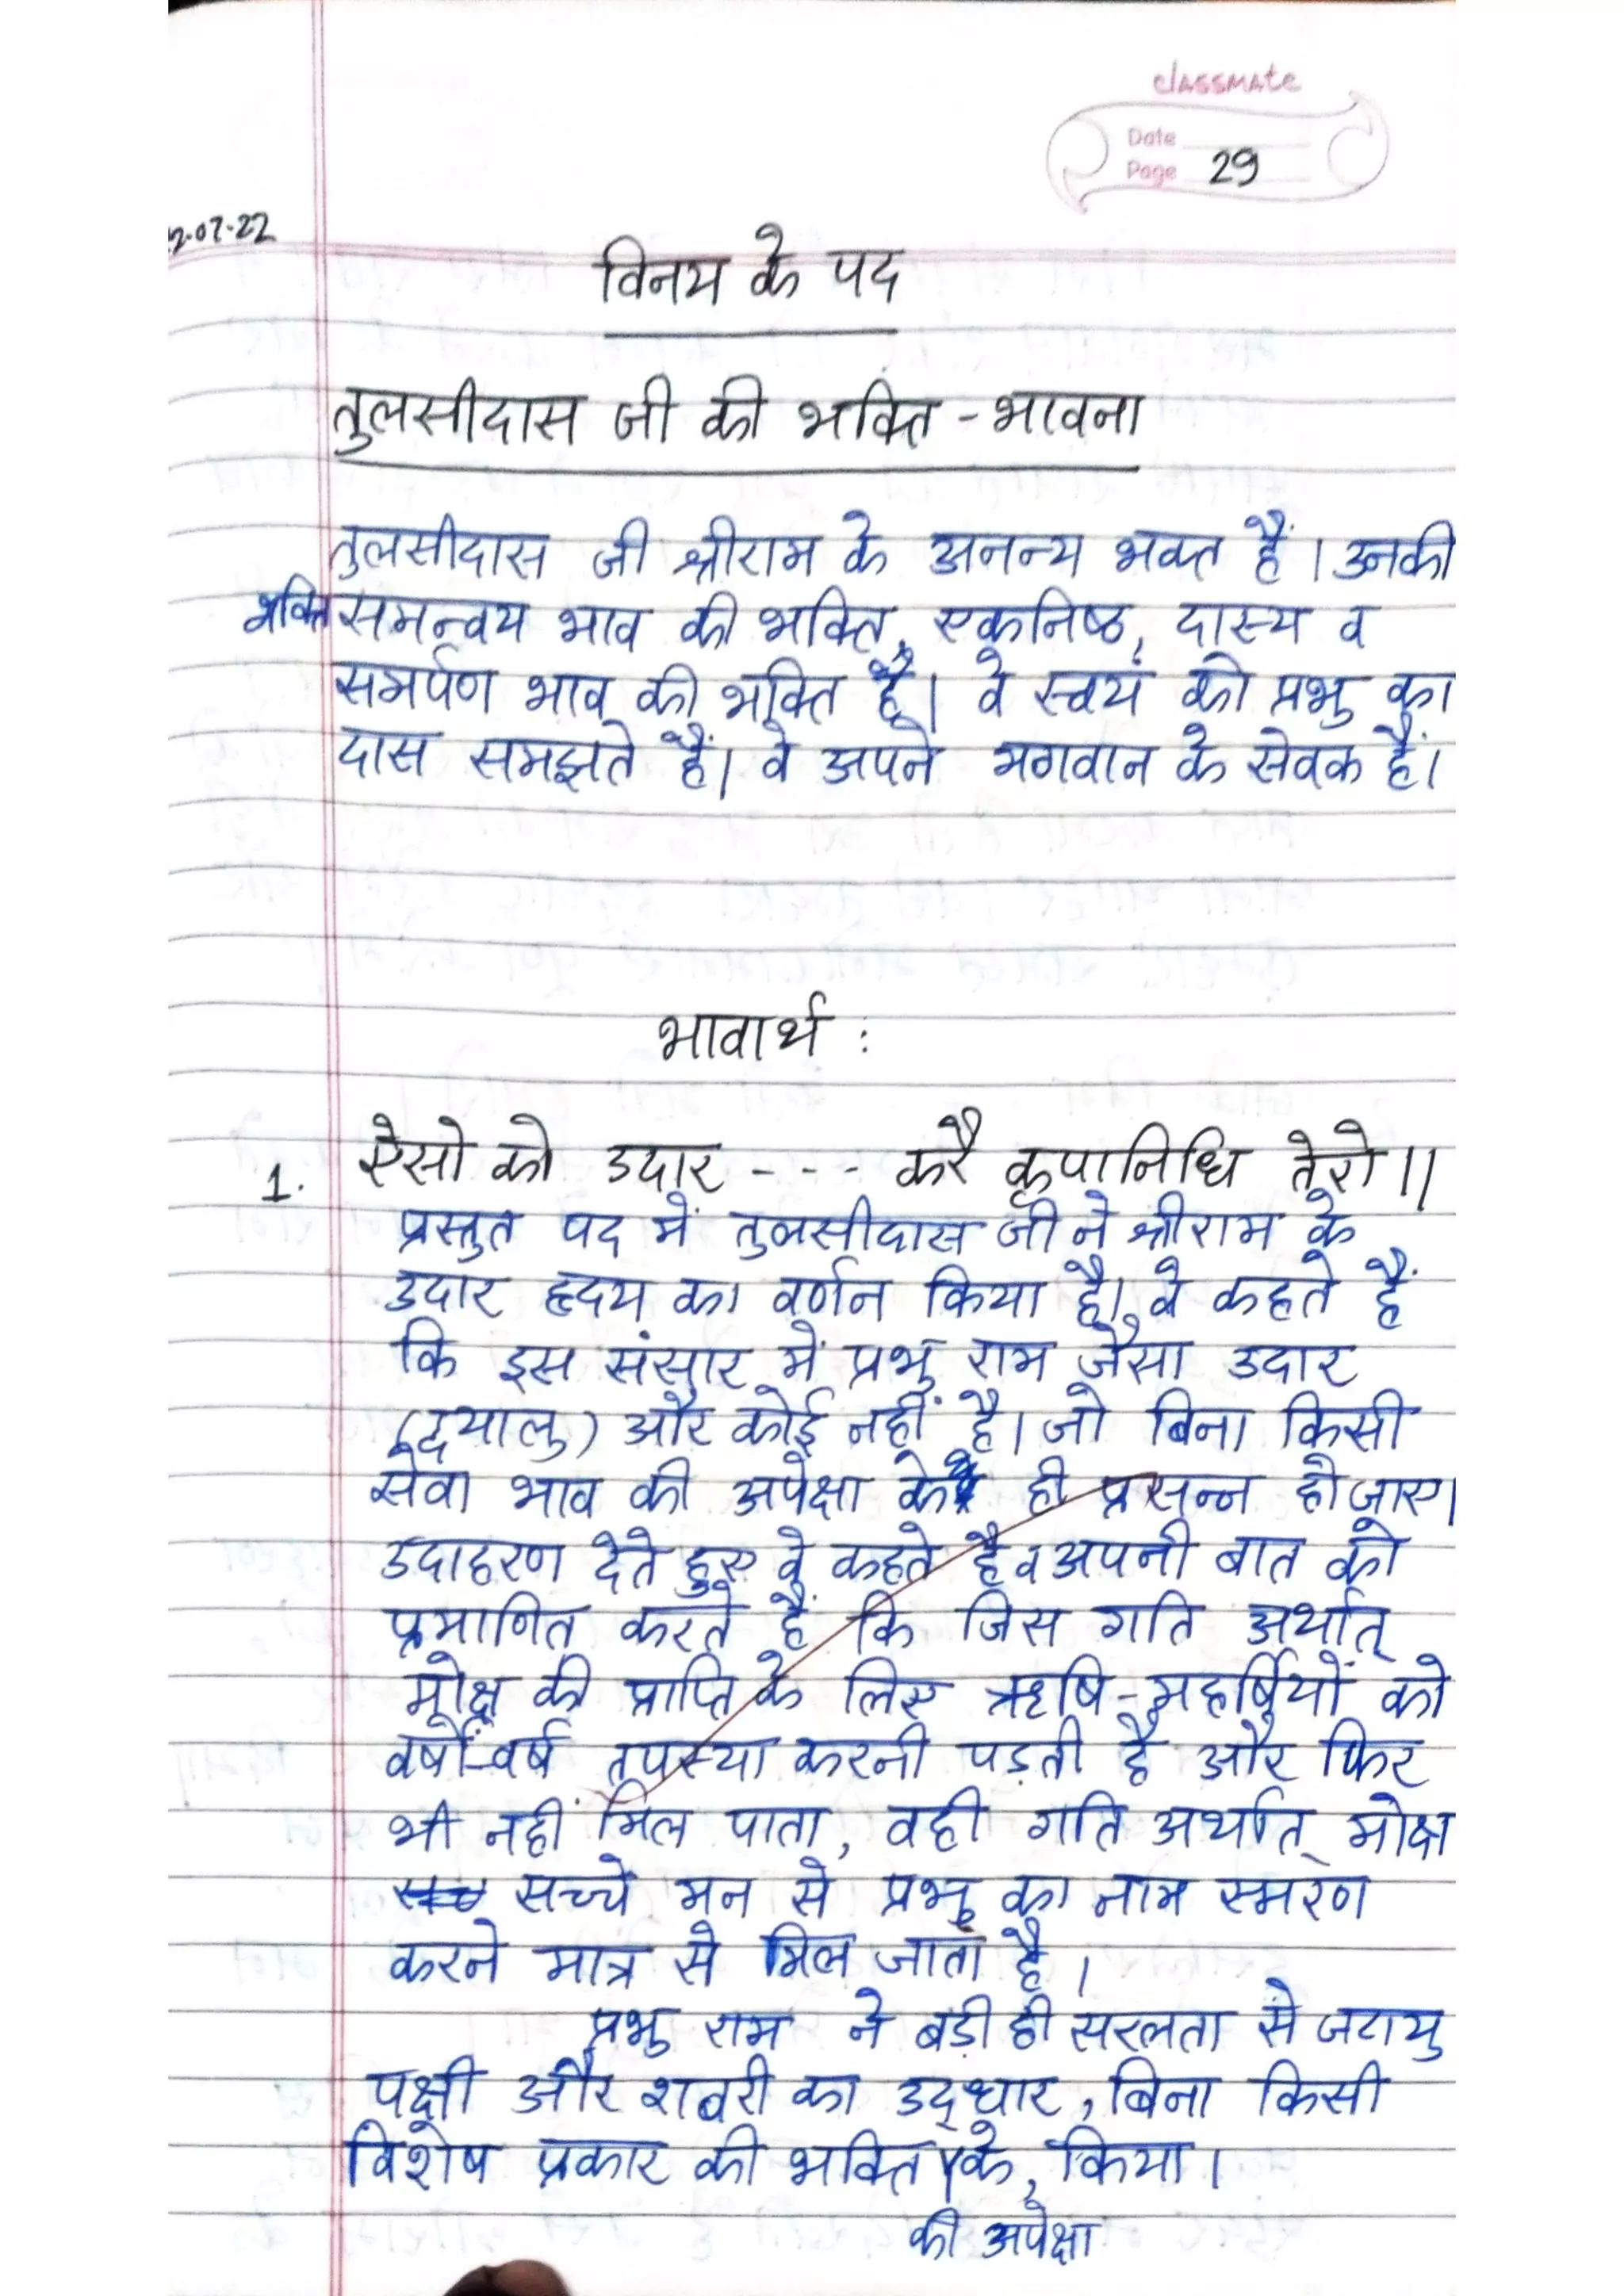 classmate
Date
Page 29
2-07-22
विनय के पद
तुलसीदास जी की भक्ति - भावना
तुलसीदास जी श्रीराम के अनन्य भक्त हैं । उनकी
भक्ति समन्वय भाव की भक्ति, एकनिष्ठ, दास्य व
समर्पण भाव की भक्ति है। वे स्वयं को प्रभु का
दास समझते हैं। वे अपने भगवान के सेवक हैं।
भावार्थ :
1. ऐसो को उदार - - - करै कृपानिधि तेरो ||
प्रस्तुत पद में तुलसीदास जी ने श्रीराम के
उदार हृदय का वर्णन किया है। वे कहते हैं
कि इस संसार में प्रभु राम जैसा उदार
(दयालु) और कोई नहीं है। जो बिना किसी
सेवा भाव की अपेक्षा के ही प्रसन्न हो जाए।
उदाहरण देते हुए वे कहते है व अपनी बात को
प्रमाणित करते हैं कि जिस गति अर्थात्
मोक्ष की प्राप्ति के लिए ऋषि-महर्षियों को
वर्षों-वर्ष तपस्या करनी पड़ती है और फिर
भी नहीं मिल पाता, वही गति अर्थात् मोक्ष
सच्चे मन से प्रभु का नाम स्मरण
करने मात्र से मिल जाता है ।
प्रभु राम ने बड़ी ही सरलता से जटायु
पक्षी और शबरी का उद्धार, बिना किसी
विशेष प्रकार की भक्ति के, किया ।
की अपेक्षा